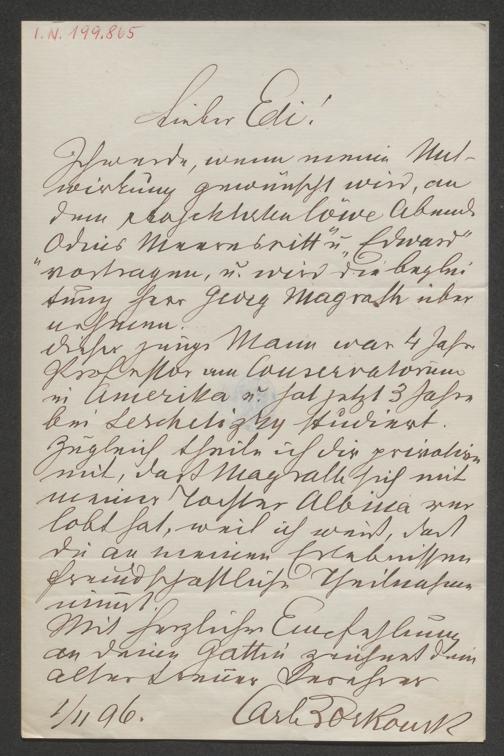 I.N. 199.865
Lieber Edi!
Ich werde, wenn meine Mit-
wirkung gewünscht wird, an
dem projektirten Löwe Abend
Odins Meeresritt" u "Edward"
"vortragen, u. wird die beglei
tung Herr Georg Magrath über
nehmen.
Dieser junge Mann war 4 Jahr
Professor am Conservatorium
in Amerika u. hat jetzt 3 Jahre
bei Leschetizky studiert.
Zugleich theile ich dir privatim
mit, dass Magrath sich mit
meiner Tochter Albina ver
lobt hat, weil ich weiss, dass
du an meinen Erlebnissen
freundschaftliche Theilnahme
nimmst.
Mit herzlicher Empfehlung
an deine Gattin zeichnet dein
alter treuer Verehrer
1/11 96.
Carl Borkowsk